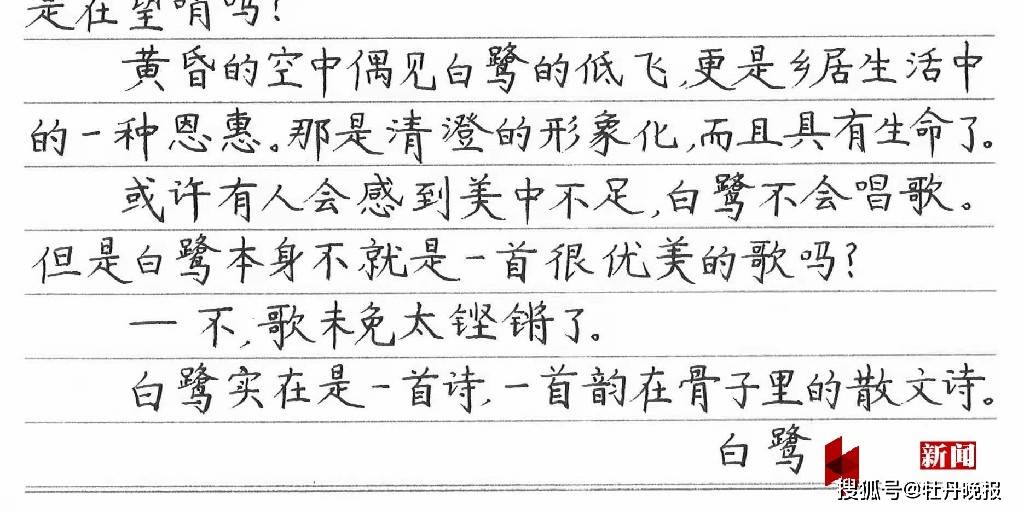 是在望哨吗？
黄昏的空中偶见白鹭的低飞,更是乡居生活中
的一种恩惠。那是清澄的形象化,而且具有生命了。
或许有人会感到美中不足,白鹭不会唱歌。
但是白鹭本身不就是一首很优美的歌吗？
— 不,歌未免太铿锵了。
白鹭实在是一首诗,一首韵在骨子里的散文诗。
白鹭
新闻
搜狐号@牡丹晚报